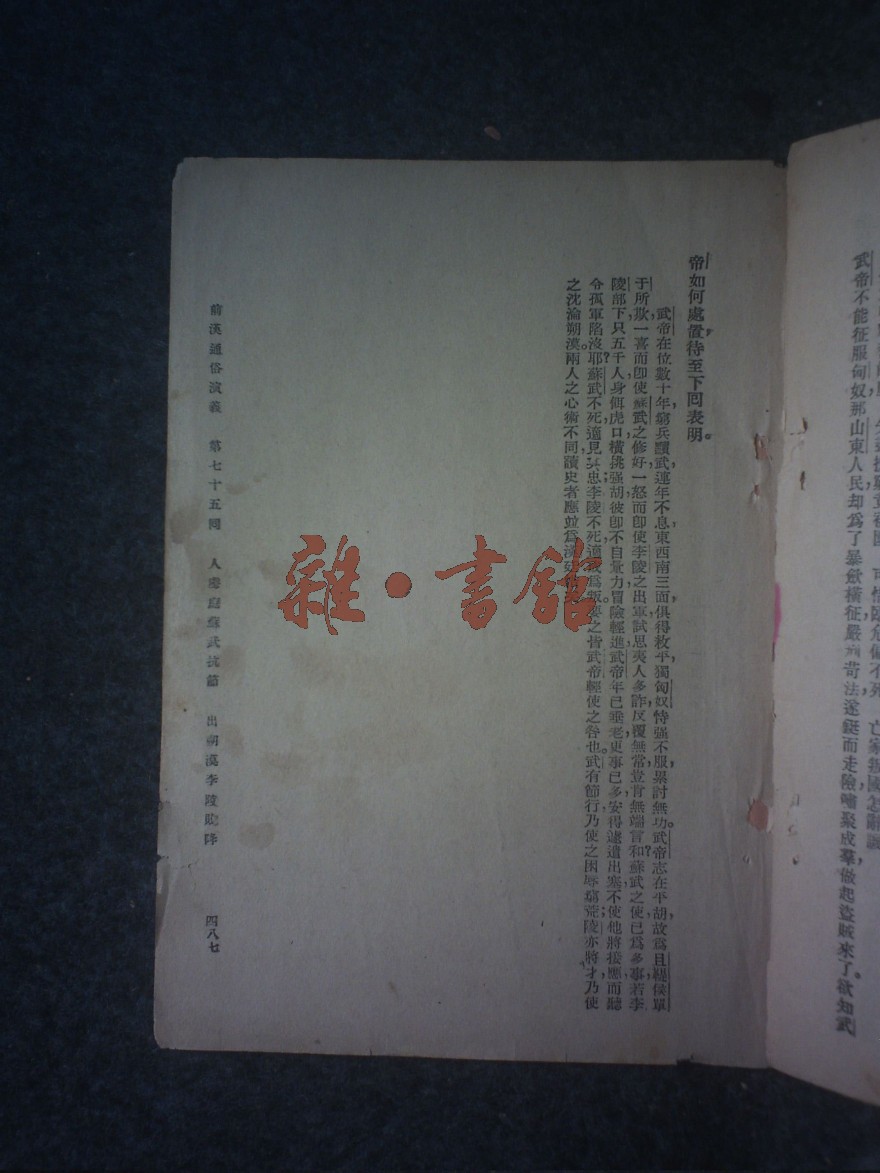 武帝不能征服匈奴那山東人民却爲了暴斂橫征嚴刑苛法遂鋌而走險嘯聚成羣做起盜賊來了欲知武
帝如何處置待至下回表明。
武帝在位數十年窮兵黷武連年不息東西南三面俱得敉平獨匈奴恃强不服累討無功。武帝志在平胡故爲且鞮侯單
于所欺一喜而卽使蘇武之修好一怒而卽使李陵之出軍試思夷人多詐反覆無常豈肯無端言和蘇武之使已爲多事若李
陵部下只五千人身餌虎口橫挑强胡彼卽不自量力冒險輕進武帝年已垂老更事已多安得遽遣出塞不使他將接應而聽
令孤軍陷沒耶蘇武不死適見其忠李陵不死適成爲叛要之皆武帝輕使之咎也。武有節行乃使之困辱窮荒陵亦將才乃使
之沈淪朔漠兩人之心術不同讀史者應並爲漢
前漢通俗演義 第七十五回 入虜庭蘇武抗節 出朔漠李陵敗降 四八七
雜·書館